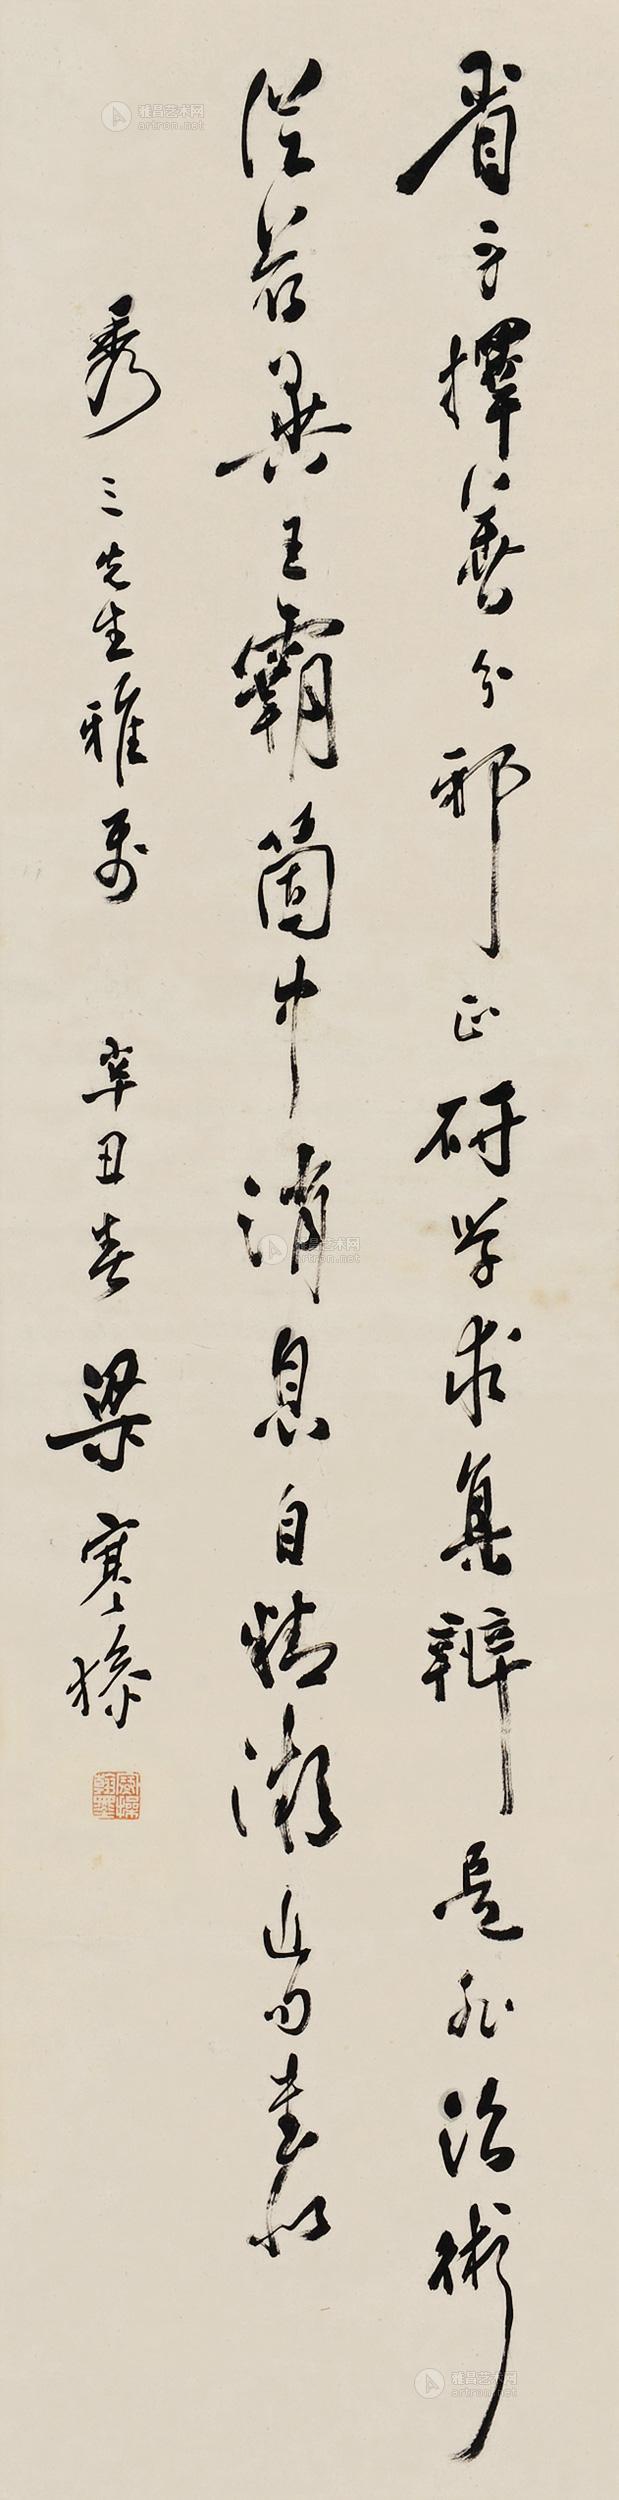 省身擇善分邪正研学求真辨是非治術
從異王霸箇中消息自精微近句書似
秀三先生雅屬 辛丑春 梁寒操
寒操翰墨
雅昌艺术网
artron.net
雅昌艺术网
artron.net
雅昌艺术网
artron.net